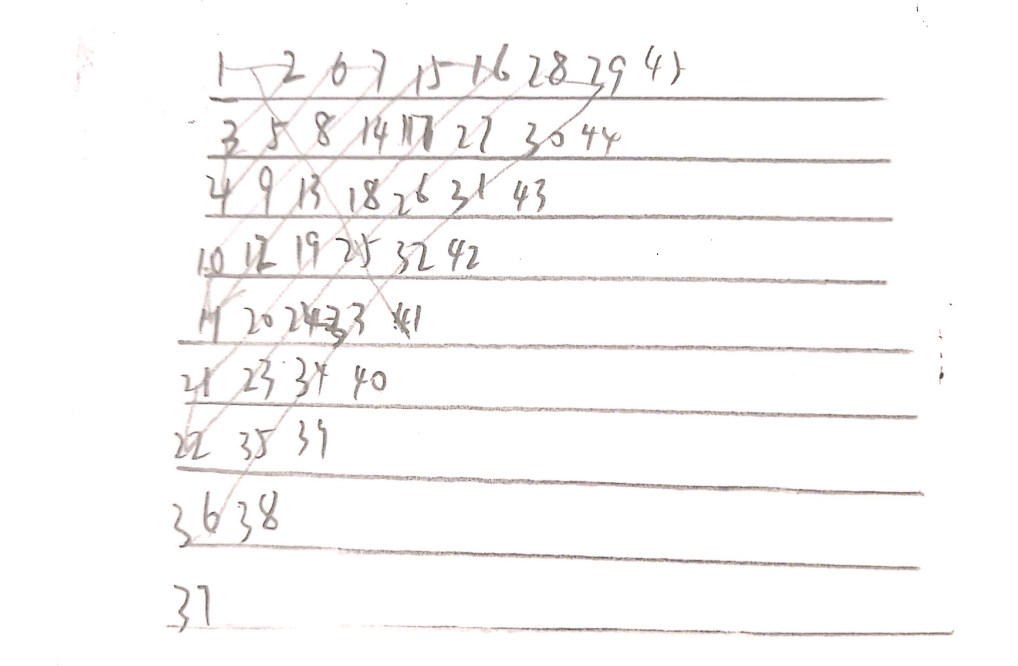 1 2 6 7 15 16 28 29 45
3 5 8 14 17 27 30 44
4 9 13 18 26 31 43
10 12 19 25 32 42
11 20 24 33 41
21 23 34 40
22 35 39
36 38
37